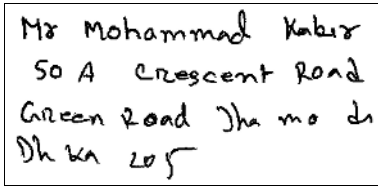 Mr Mohammad Kabir
50 A Crescent Road
Green Road Dha mo di
Dh ka 205